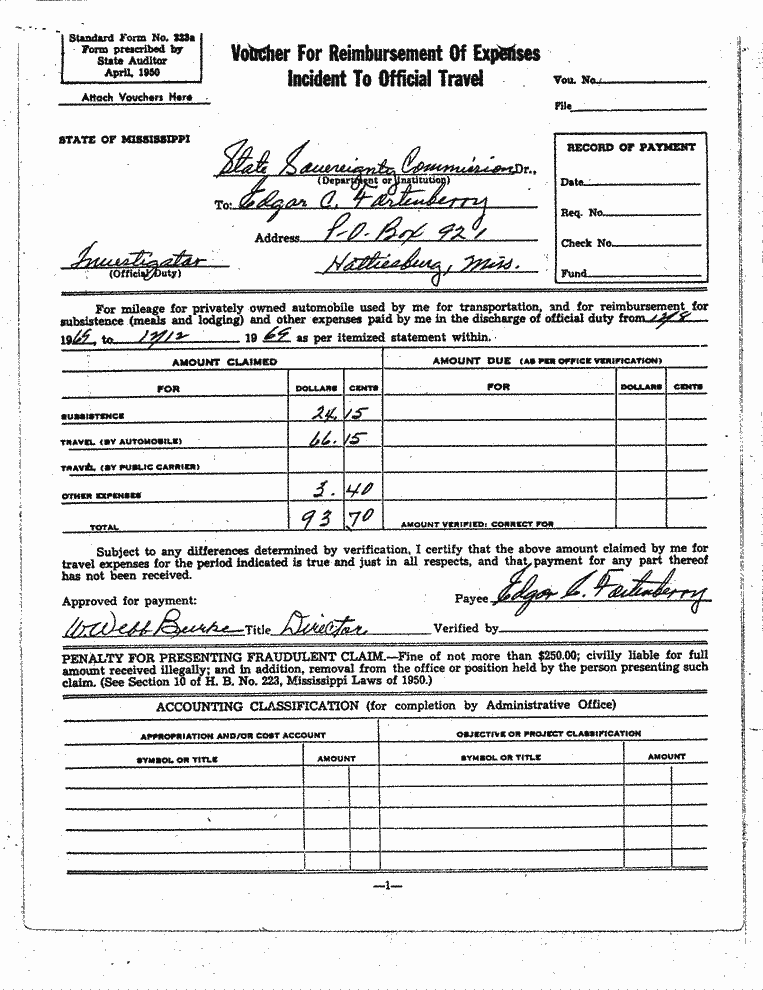 Standard Form No. 223a
Form prescribed by
State Auditor
April, 1950
Attach Vouchers Here
Voucher For Reimbursement Of Expenses
Incident To Official Travel
Vou. No.
File
STATE OF MISSISSIPPI
State Sovereignty Commission Dr.,
(Department or Institution)
To: Edgar C. Fortenberry
Address P.O. Box 921
Hattiesburg, Miss.
Investigator
(Official Duty)
RECORD OF PAYMENT
Date
Req. No.
Check No.
Fund
For mileage for privately owned automobile used by me for transportation, and for reimbursement for
subsistence (meals and lodging) and other expenses paid by me in the discharge of official duty from 12/8
1969, to 12/12 1969 as per itemized statement within.
AMOUNT CLAIMED AMOUNT DUE (AS PER OFFICE VERIFICATION)
FOR DOLLARS CENTS FOR DOLLARS CENTS
SUBSISTENCE 24.15
TRAVEL (BY AUTOMOBILE) 66.15
TRAVEL (BY PUBLIC CARRIER)
OTHER EXPENSES 3.40
TOTAL 93 70 AMOUNT VERIFIED: CORRECT FOR
Subject to any differences determined by verification, I certify that the above amount claimed by me for
travel expenses for the period indicated is true and just in all respects, and that payment for any part thereof
has not been received.
Payee Edgar C. Fortenberry
Approved for payment:
W. Webb Burke Title Director Verified by
PENALTY FOR PRESENTING FRAUDULENT CLAIM.—Fine of not more than $250.00; civilly liable for full
amount received illegally; and in addition, removal from the office or position held by the person presenting such
claim. (See Section 10 of H. B. No. 223, Mississippi Laws of 1950.)
ACCOUNTING CLASSIFICATION (for completion by Administrative Office)
APPROPRIATION AND/OR COST ACCOUNT OBJECTIVE OR PROJECT CLASSIFICATION
SYMBOL OR TITLE AMOUNT SYMBOL OR TITLE AMOUNT
—1—